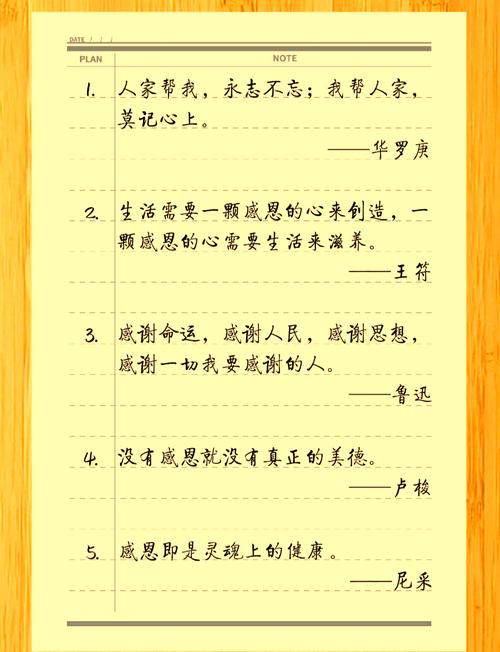 DATE / / /
PLAN NOTE
1. 人家帮我，永志不忘；我帮人家，
莫记心上。
——华罗庚
2. 生活需要一颗感恩的心来创造，一
颗感恩的心需要生活来滋养。
——王符
3. 感谢命运，感谢人民，感谢思想，
感谢一切我要感谢的人。
——鲁迅
4. 没有感恩就没有真正的美德。
——卢梭
5. 感恩即是灵魂上的健康。
——尼采